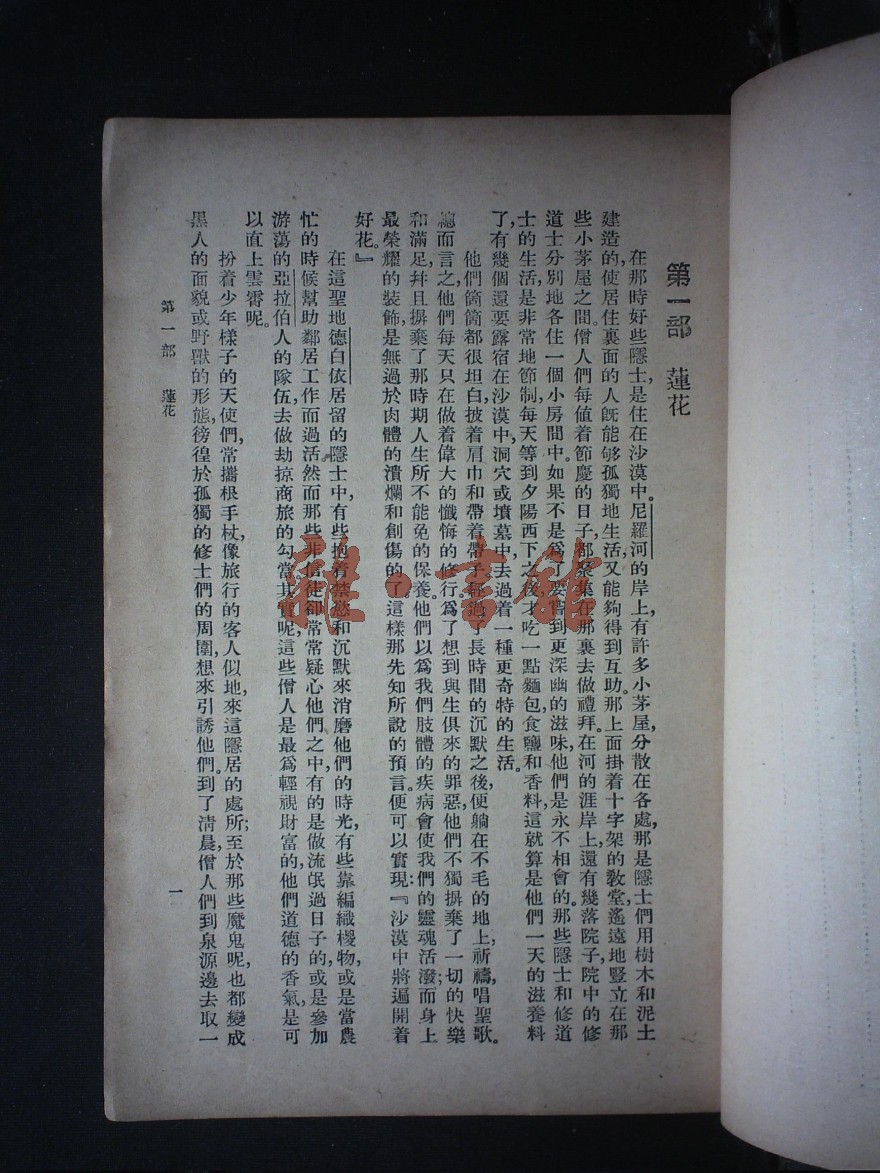 第一部　蓮花
在那時好些隱士，是住在沙漠中。尼羅河的岸上，有許多小茅屋，分散在各處，那是隱士們用樹木和泥土
建造的，使居住裏面的人旣能够孤獨地生活，又能夠得到互助。那上面掛着十字架的敎堂，遙遠地豎立在那
些小茅屋之間。僧人們每値着節慶的日子，都聚集在那裏去做禮拜。在河的涯岸上，還有幾落院子，院中的修
道士分別地各住一個小房間中。如果不是爲了要嘗到更深幽的滋味，他們是永不相會的。那些隱士和修道
士的生活，是非常地節制，每天等到夕陽西下之後，才吃一點麵包，食鹽和香料，這就算是他們一天的滋養料
了，有幾個還要露宿在沙漠中，洞穴或墳墓中，去過着一種更奇特的生活。
他們箇箇都很坦白，披着肩巾和帶着帶子，經過了長時間的沉默之後，便躺在不毛的地上，祈禱，唱聖歌。
總而言之，他們每天只在做着偉大的懺悔的修行。爲了想到與生俱來的罪惡，他們不獨摒棄了一切的快樂
和滿足，幷且摒棄了那時期人生所不能免的保養。他們以爲我們肢體的疾病會使我們的靈魂活潑；而身上
最榮耀的裝飾，是無過於肉體的潰爛和創傷的了。這樣那先知所說的預言，便可以實現：『沙漠中將遍開着
好花。』
在這聖地德白依居留的隱士中，有些抱着禁慾和沉默來消磨他們的時光，有些靠編織椶物，或是當農
忙的時候幫助鄰居工作而過活。然而那些非信徒卻常常疑心他們之中，有的是做流氓過日子的，或是參加
游蕩的亞拉伯人的隊伍，去做劫掠商旅的勾當。其實呢，這些僧人是最爲輕視財富的，他們道德的香氣，是可
以直上雲霄呢。
扮着少年樣子的天使們，常攜根手杖，像旅行的客人似地，來這隱居的處所；至於那些魔鬼呢，也都變成
黑人的面貌或野獸的形態，徬徨於孤獨的修士們的周圍，想來引誘他們。到了淸晨，僧人們到泉源邊去取一
第一部　蓮花
一
雜·書館